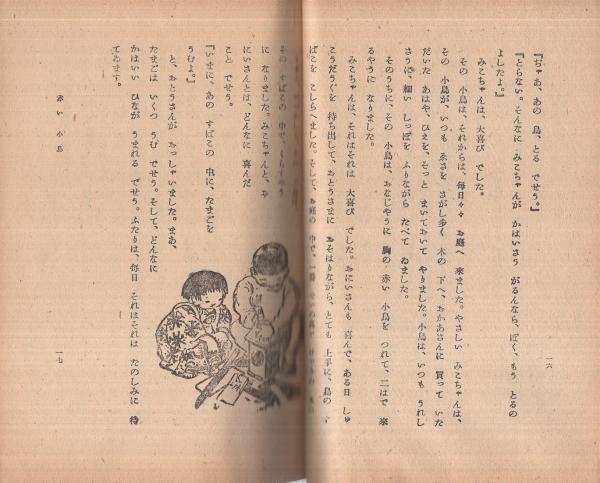 一六
『ぢゃあ、あの 鳥、とる でせう。』
『とらない。そんなに みこちゃんが かはいさう がるんなら、ぼく、もう とるの
よしたよ。』
みこちゃんは、大喜び でした。
その 小鳥は、それからは、毎日々々 お庭へ 來ました。やさしい みこちゃんは、
その 小鳥が、いつも ゑさを さがし歩く 木の 下へ、おかあさんに 買って いた
だいた あはや、ひえを、そっと まいておいて やりました。小鳥は、いつも うれし
さうに、細い しっぽを ふりながら たべて ゐました。
そのうちに、その 小鳥は、おなじやうに 胸の 赤い 小鳥を つれて、二はで 來
るやうに なりました。
みこちゃんは、それはそれは 大喜び でした。おにいさんも 喜んで、ある日 しゅ
こうだうぐを 持ち出して、おとうさまに おそはりながら、とても 上手に、鳥の す
ばこを こしらへました。そして、お庭の 中で、一番
その すばこの 中で、くらすやう
に なりました。みこちゃんと、お
にいさんとは、どんなに 喜んだ
こと でせう。
『いまに、あの すばこの 中に、たまごを
うむよ。』
と、おとうさんが おっしゃいました。まあ、
たまごは いくつ うむ でせう。そして、どんなに
かはいい ひなが うまれる でせう。ふたりは、毎日 それはそれは たのしみに 待
てゐます。
赤い 小鳥
一七